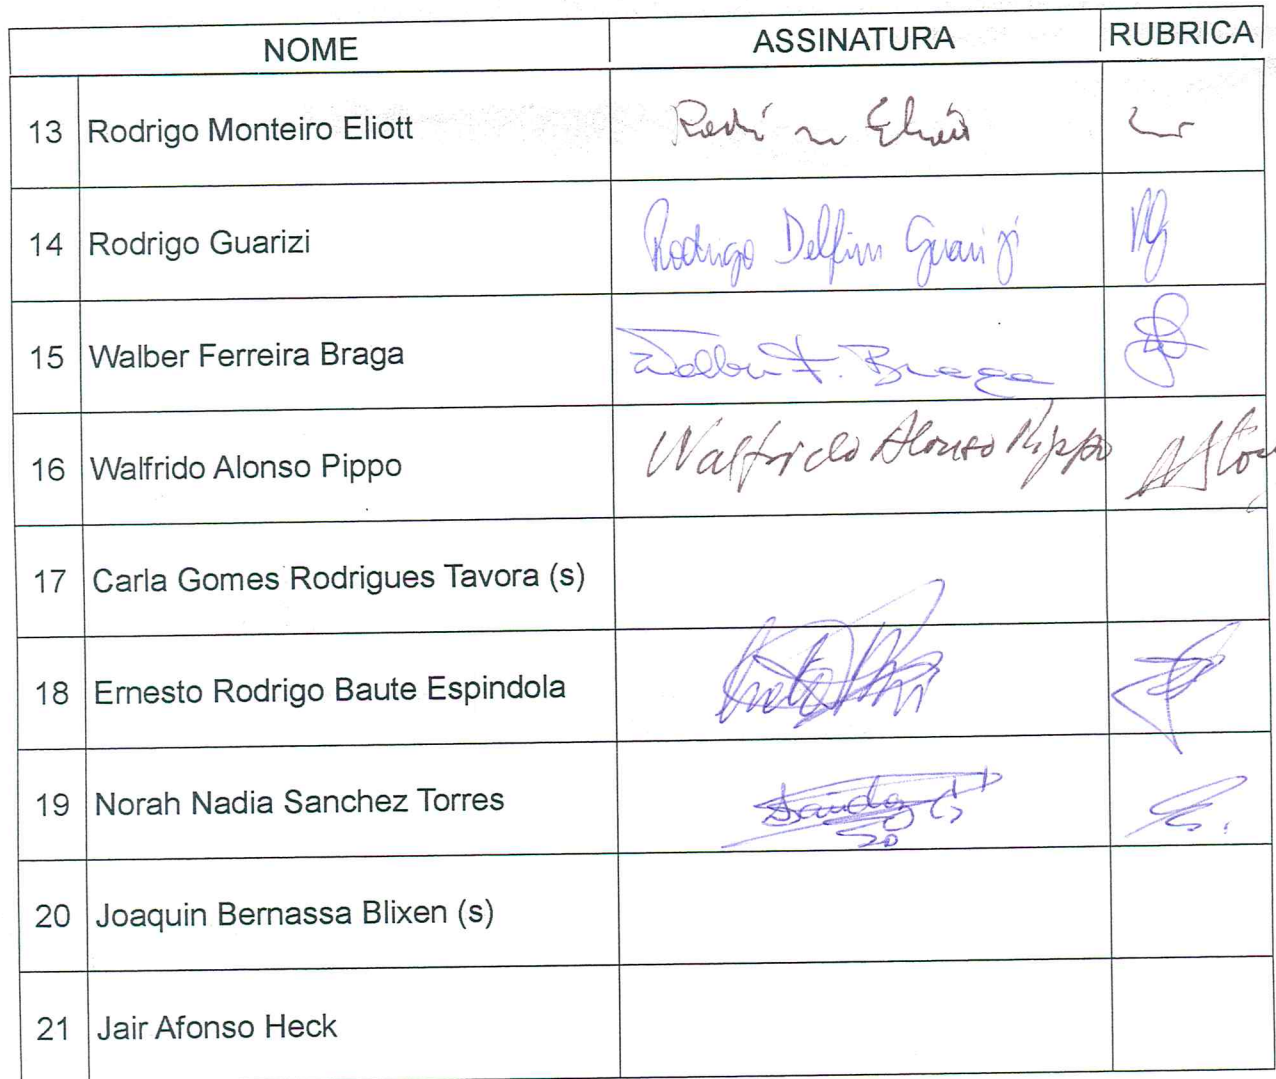 NOME ASSINATURA RUBRICA
13 Rodrigo Monteiro Eliott
14 Rodrigo Guarizi Rodrigo Delfim Guarizi
15 Walber Ferreira Braga Walber F. Braga
16 Walfrido Alonso Pippo Walfrido Alonso Pippo
17 Carla Gomes Rodrigues Tavora (s)
18 Ernesto Rodrigo Baute Espindola
19 Norah Nadia Sanchez Torres
20 Joaquin Bernassa Blixen (s)
21 Jair Afonso Heck